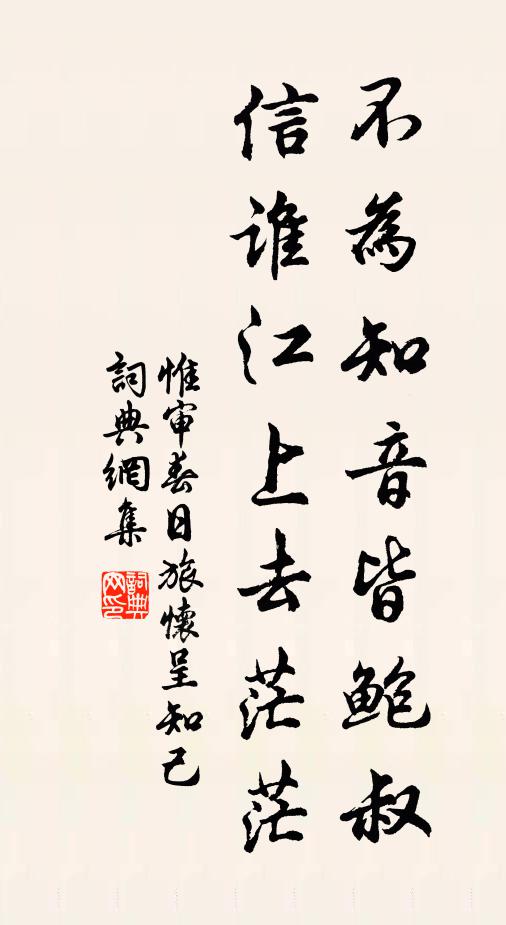 不為知音皆鮑叔
信誰江上去茫茫
惟审春日旅懷呈知己
詞典網集
詞典網印